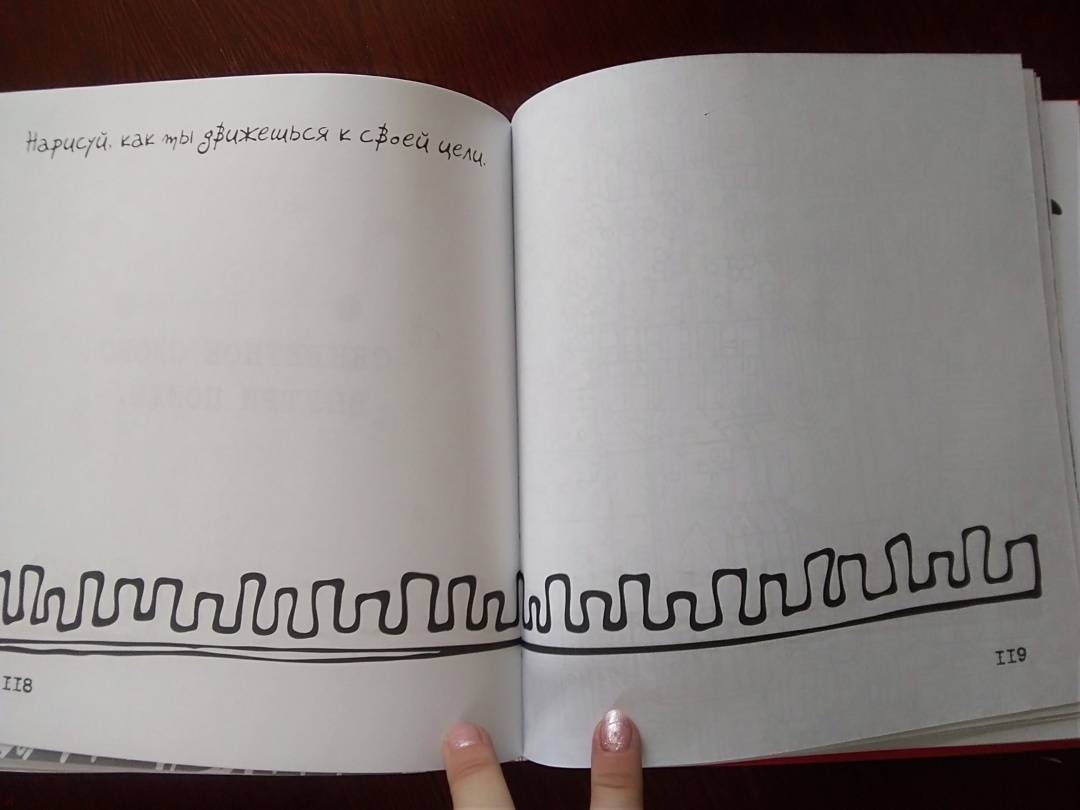 Нарисуй, как ты движешься к своей цели.
118
119